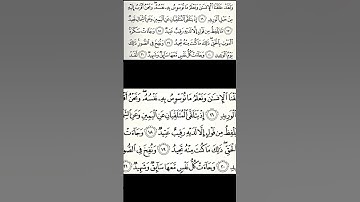 وَلَقَدْ خَلَقْنَا ٱلْإِنسَٰنَ وَنَعْلَمُ مَا تُوَسْوِسُ بِهِۦ نَفْسُهُۥ ۖ وَنَحْنُ أَقْرَبُ إِلَيْهِ
مِنْ حَبْلِ ٱلْوَرِيدِ ١٦ إِذْ يَتَلَقَّى ٱلْمُتَلَقِّيَانِ عَنِ ٱلْيَمِينِ وَعَنِ ٱلشِّمَالِ قَعِيدٌ
١٧ مَّا يَلْفِظُ مِن قَوْلٍ إِلَّا لَدَيْهِ رَقِيبٌ عَتِيدٌ ١٨ وَجَآءَتْ سَكْرَةُ
ٱلْمَوْتِ بِٱلْحَقِّ ۖ ذَٰلِكَ مَا كُنتَ مِنْهُ تَحِيدُ ١٩ وَنُفِخَ فِى ٱلصُّورِ ۚ ذَٰلِكَ
يَوْمُ ٱلْوَعِيدِ ٢٠ وَجَآءَتْ كُلُّ نَفْسٍ مَّعَهَا سَآئِقٌ وَشَهِيدٌ ٢١ لَّقَدْ
قْنَا ٱلْإِنسَٰنَ وَنَعْلَمُ مَا تُوَسْوِسُ بِهِۦ نَفْسُهُۥ ۖ وَنَحْنُ أَقْرَ
١٦ إِذْ يَتَلَقَّى ٱلْمُتَلَقِّيَانِ عَنِ ٱلْيَمِينِ وَعَنِ
يَلْفِظُ مِن قَوْلٍ إِلَّا لَدَيْهِ رَقِيبٌ عَتِيدٌ ١٨ وَجَآءَتْ
ٱلْحَقِّ ۖ ذَٰلِكَ مَا كُنتَ مِنْهُ تَحِيدُ ١٩ وَنُفِخَ فِى ٱلصُّو
٢٠ وَجَآءَتْ كُلُّ نَفْسٍ مَّعَهَا سَآئِقٌ وَشَهِيدٌ ٢١